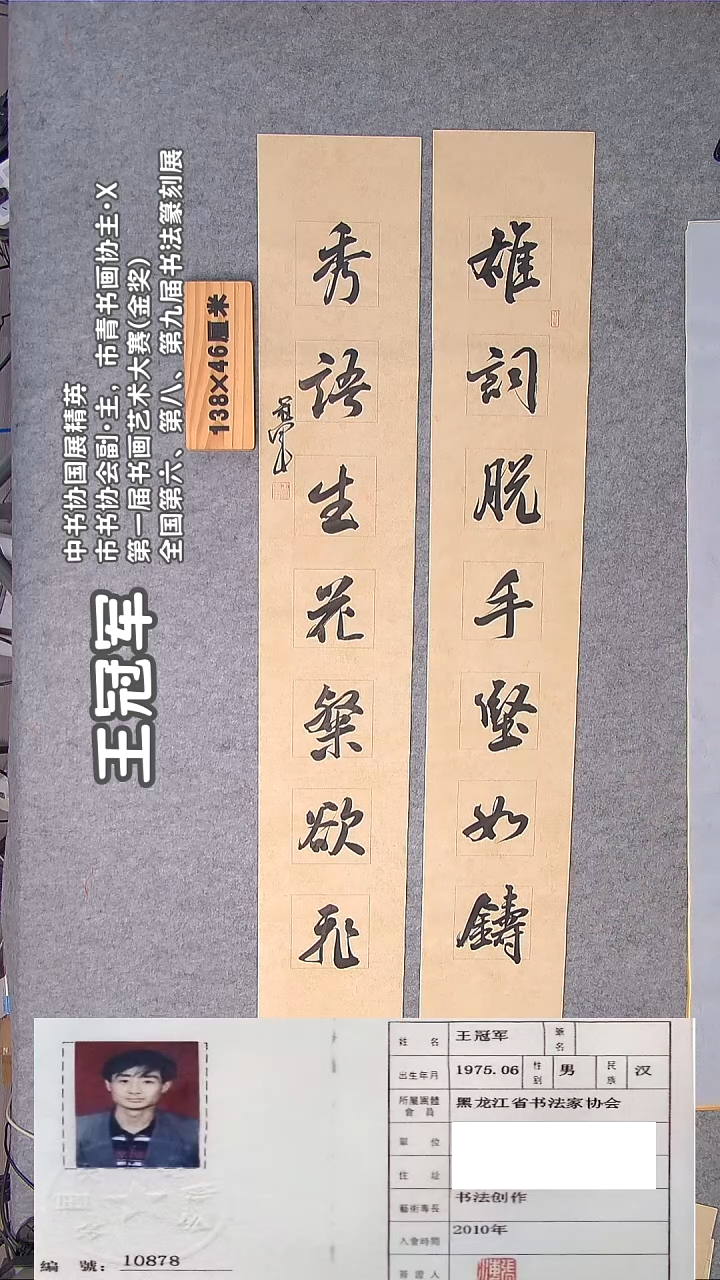 雄詞脱手堅如鑄
秀語生花粲欲飛
冠軍
138×46厘米
中书协国展精英
市书协会副·主，市青书画协主·X
第一届书画艺术大赛(金奖)
全国第六、第八、第九届书法篆刻展
王冠军
姓名 王冠军 筆名
出生年月 1975.06 性别 男 民族 汉
所屬團體會員 黑龙江省书法家协会
單位
住址
藝術專長 书法创作
入會時間 2010年
簽證人
編號：10878